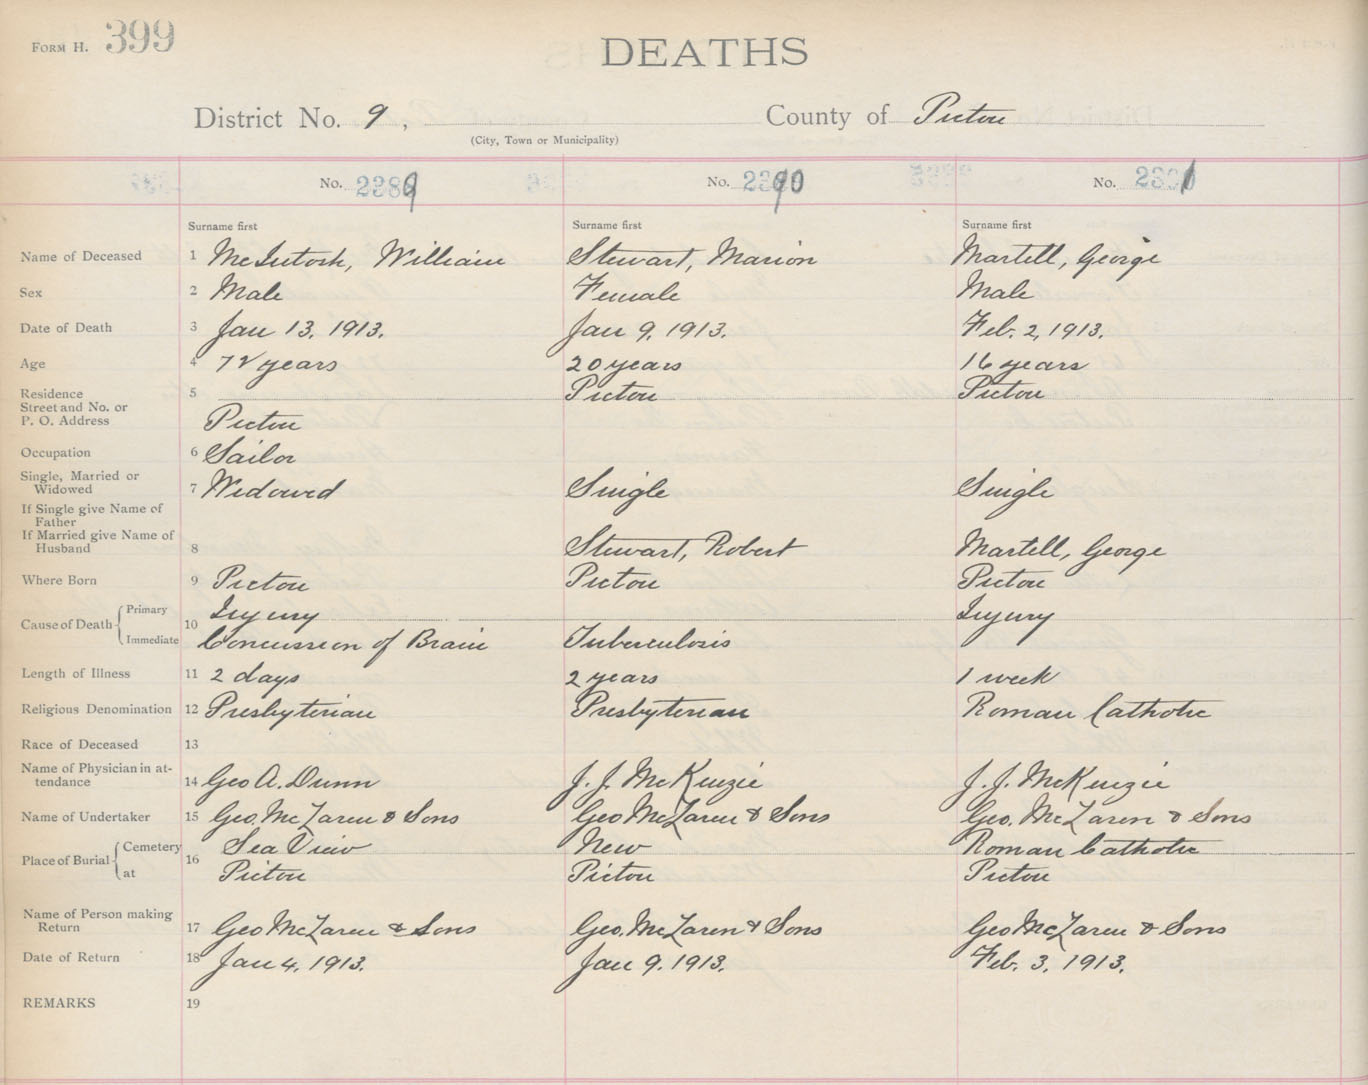 FORM H. 399
DEATHS
District No. 9, County of Pictou
(City, Town or Municipality)
No. 2389 No. 2390 No. 2391
Surname first Surname first Surname first
Name of Deceased 1 McIntosh, William Stewart, Marion Martell, George
Sex 2 Male Female Male
Date of Death 3 Jan 13, 1913. Jan 9, 1913. Feb. 2, 1913.
Age 4 72 years 20 years 16 years
Residence 5 Pictou Pictou
Street and No. or
P. O. Address Pictou
Occupation 6 Sailor
Single, Married or
Widowed 7 Widowed Single Single
If Single give Name of
Father
If Married give Name of
Husband 8 Stewart, Robert Martell, George
Where Born 9 Pictou Pictou Pictou
Cause of Death Primary 10 Injury Injury
Immediate Concussion of Brain Tuberculosis
Length of Illness 11 2 days 2 years 1 week
Religious Denomination 12 Presbyterian Presbyterian Roman Catholic
Race of Deceased 13
Name of Physician in at-
tendance 14 Geo A. Dunn J. J. McKenzie J. J. McKenzie
Name of Undertaker 15 Geo. McLaren & Sons Geo. McLaren & Sons Geo. McLaren & Sons
Place of Burial Cemetery 16 Sea View New Roman Catholic
at Pictou Pictou Pictou
Name of Person making
Return 17 Geo McLaren & Sons Geo. McLaren & Sons Geo McLaren & Sons
Date of Return 18 Jan 4, 1913. Jan 9. 1913. Feb. 3, 1913.
REMARKS 19